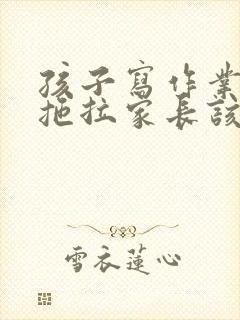 孩子寫作業
拖拉家長該
雪衣蓮心